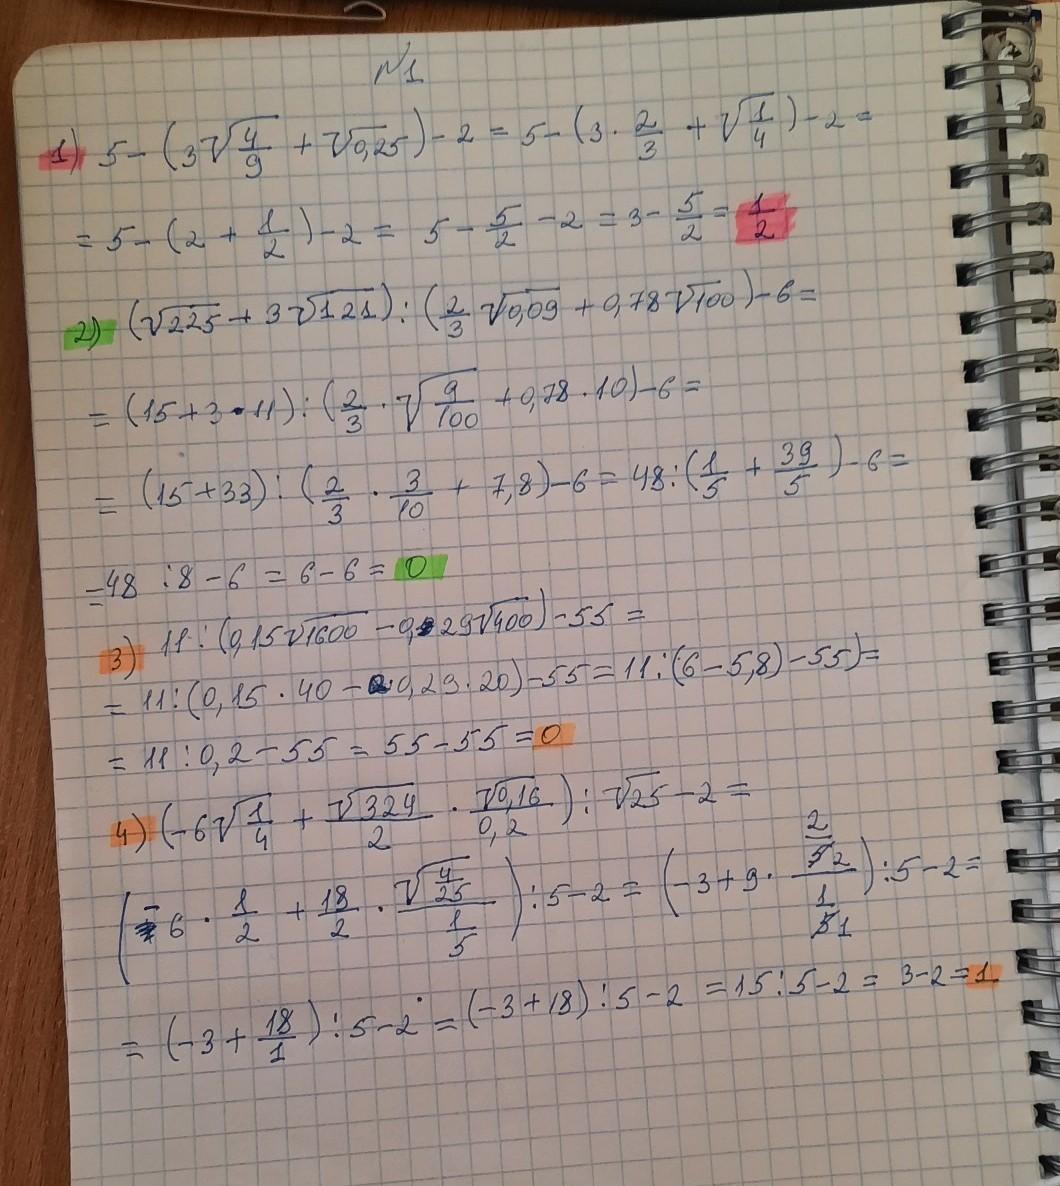 №1
1) 5-(3√4/9 + √0,25)-2 = 5-(3·2/3 + √1/4)-2=
=5-(2+1/2)-2= 5-5/2-2=3-5/2=1/2
2) (√225+3√121):(2/3√0,09+0,78√100)-6=
=(15+3·11):(2/3·√9/100+0,78·10)-6=
= (15+33):(2/3·3/10+7,8)-6=48:(1/5+39/5)-6=
=48:8-6=6-6=0
3) 11:(0,15√1600-0,29√400)-55=
=11:(0,15·40-0,29·20)-55=11:(6-5,8)-55)=
=11:0,2-55=55-55=0
4) (-6√1/4+√324/2·√0,16/0,2):√25-2=
(-6·1/2+18/2·√4/25/1/5):5-2=(-3+9·2/52/1/51):5-2=
=(-3+18/1):5-2=(-3+18):5-2=15:5-2=3-2=1